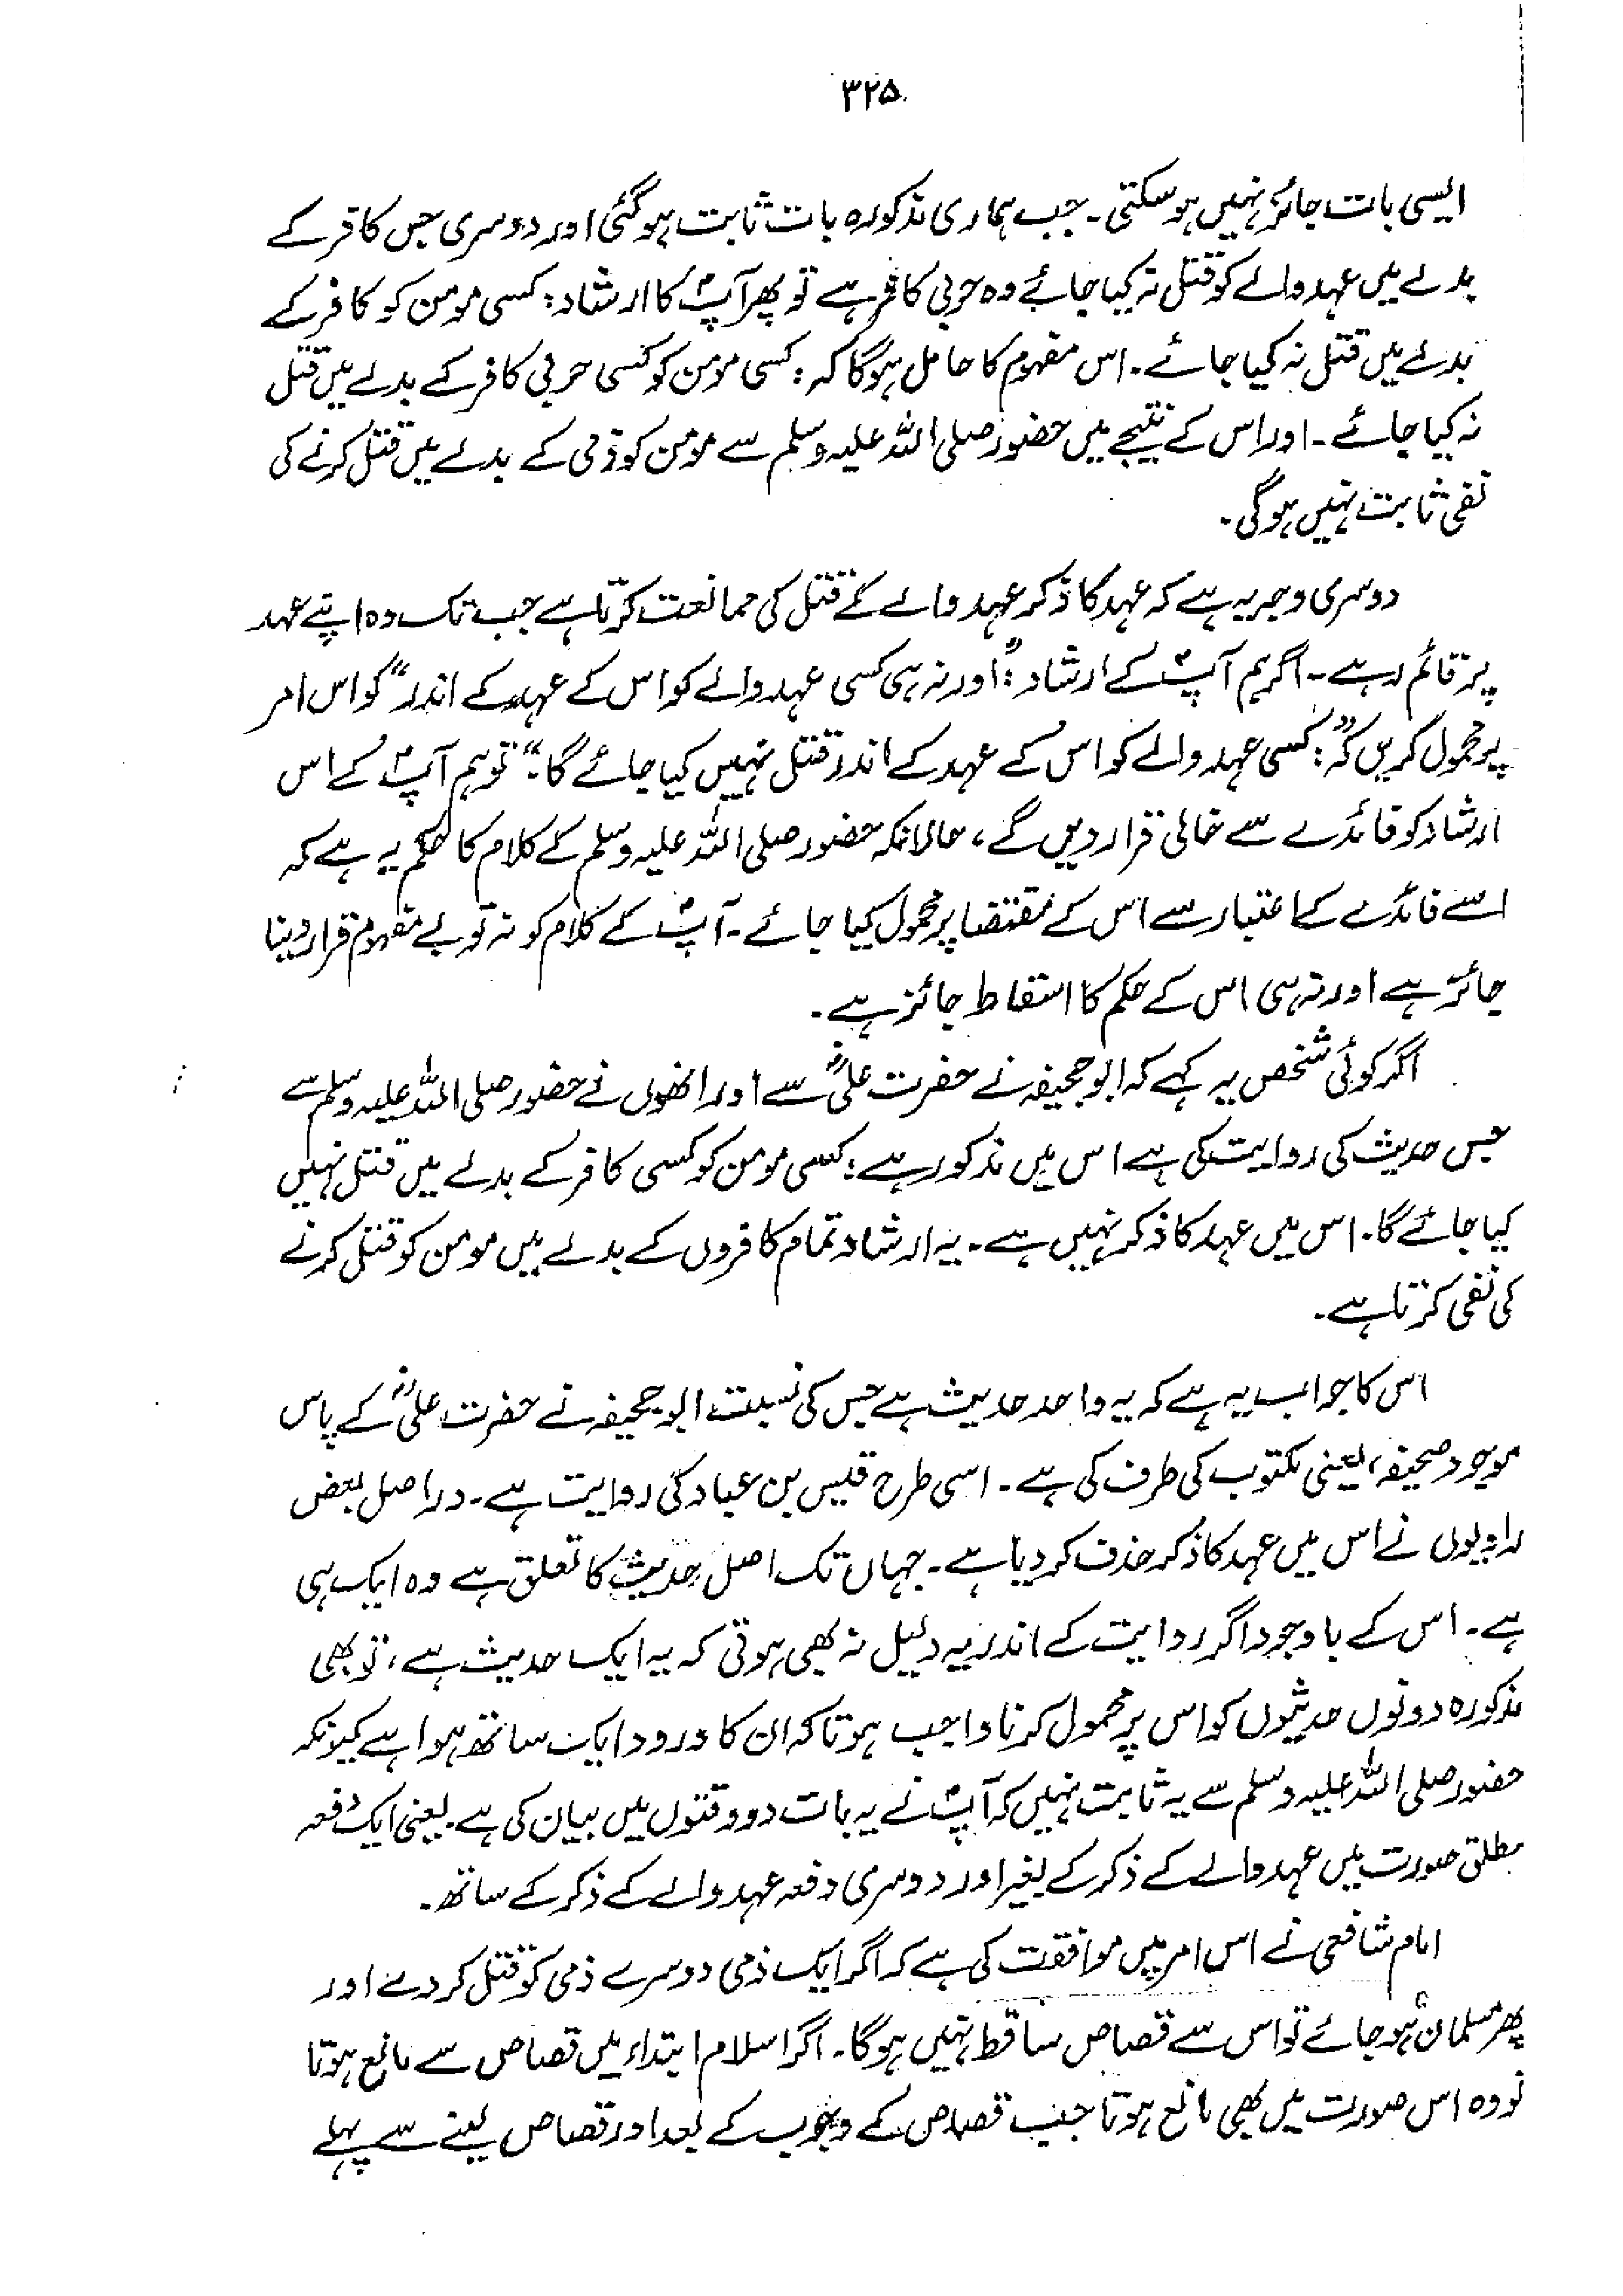 ۳۲۵
ایسی بات جائز نہیں ہوسکتی۔ جب ہماری مذکورہ بات ثابت ہوگئی اور دوسری جس کافر کے
بدلے میں عہد والے کو قتل نہ کیا جائے وہ حربی کافر ہے تو پھر آپؐ کا ارشاد: کسی مومن کو کافر کے
بدلے میں قتل نہ کیا جائے۔ اس مفہوم کا حامل ہوگا کہ: کسی مومن کو کسی حربی کافر کے بدلے میں قتل
نہ کیا جائے۔ اور اس کے نتیجے میں حضور صلی اللہ علیہ وسلم سے مومن کو ذمی کے بدلے میں قتل کرنے کی
نفی ثابت نہیں ہوگی۔
دوسری وجہ یہ ہے کہ عہد کا ذکر عہد والے کے قتل کی ممانعت کرتا ہے جب تک وہ اپنے عہد
پر قائم رہے۔ اگر ہم آپؐ کے ارشاد: "اور نہ ہی کسی عہد والے کو اس کے عہد کے اندر" کو اس امر
پر محمول کریں کہ: "کسی عہد والے کو اس کے عہد کے اندر قتل نہیں کیا جائے گا۔" تو ہم آپؐ کے اس
ارشاد کو فائدے سے خالی قرار دیں گے، حالانکہ حضور صلی اللہ علیہ وسلم کے کلام کا حکم یہ ہے کہ
اسے فائدے کے اعتبار سے اس کے مقتضا پر محمول کیا جائے۔ آپؐ کے کلام کو نہ تو بے مفہوم قرار دینا
جائز ہے اور نہ ہی اس کے حکم کا اسقاط جائز ہے۔
اگر کوئی شخص یہ کہے کہ ابوجحیفہ نے حضرت علیؓ سے اور انھوں نے حضور صلی اللہ علیہ وسلم سے
جس حدیث کی روایت کی ہے اس میں مذکور ہے: کسی مومن کو کسی کافر کے بدلے میں قتل نہیں
کیا جائے گا۔ اس میں عہد کا ذکر نہیں ہے۔ یہ ارشاد تمام کافروں کے بدلے میں مومن کو قتل کرنے
کی نفی کرتا ہے۔
اس کا جواب یہ ہے کہ یہ واحد حدیث ہے جس کی نسبت ابوجحیفہ نے حضرت علیؓ کے پاس
موجود صحیفہ، یعنی مکتوب کی طرف کی ہے۔ اسی طرح قیس بن عباد کی روایت ہے۔ دراصل بعض
راویوں نے اس میں عہد کا ذکر حذف کر دیا ہے۔ جہاں تک اصل حدیث کا تعلق ہے وہ ایک ہی
ہے۔ اس کے باوجود اگر روایت کے اندر یہ دلیل نہ بھی ہوتی کہ یہ ایک حدیث ہے، تو بھی
مذکورہ دونوں حدیثوں کو اس پر محمول کرنا واجب ہوتا کہ ان کا ورود ایک ساتھ ہوا ہے کیونکہ
حضور صلی اللہ علیہ وسلم سے یہ ثابت نہیں کہ آپؐ نے یہ بات دو وقتوں میں بیان کی ہے۔ یعنی ایک دفعہ
مطلق صورت میں عہد والے کے ذکر کے بغیر اور دوسری دفعہ عہد والے کے ذکر کے ساتھ۔
امام شافعی نے اس امر میں موافقت کی ہے کہ اگر ایک ذمی دوسرے ذمی کو قتل کر دے اور
پھر مسلمان ہو جائے تو اس سے قصاص ساقط نہیں ہوگا۔ اگر اسلام ابتداء میں قصاص سے مانع ہوتا
تو وہ اس صورت میں بھی مانع ہوتا جب قصاص کے وجوب کے بعد اور قصاص لینے سے پہلے